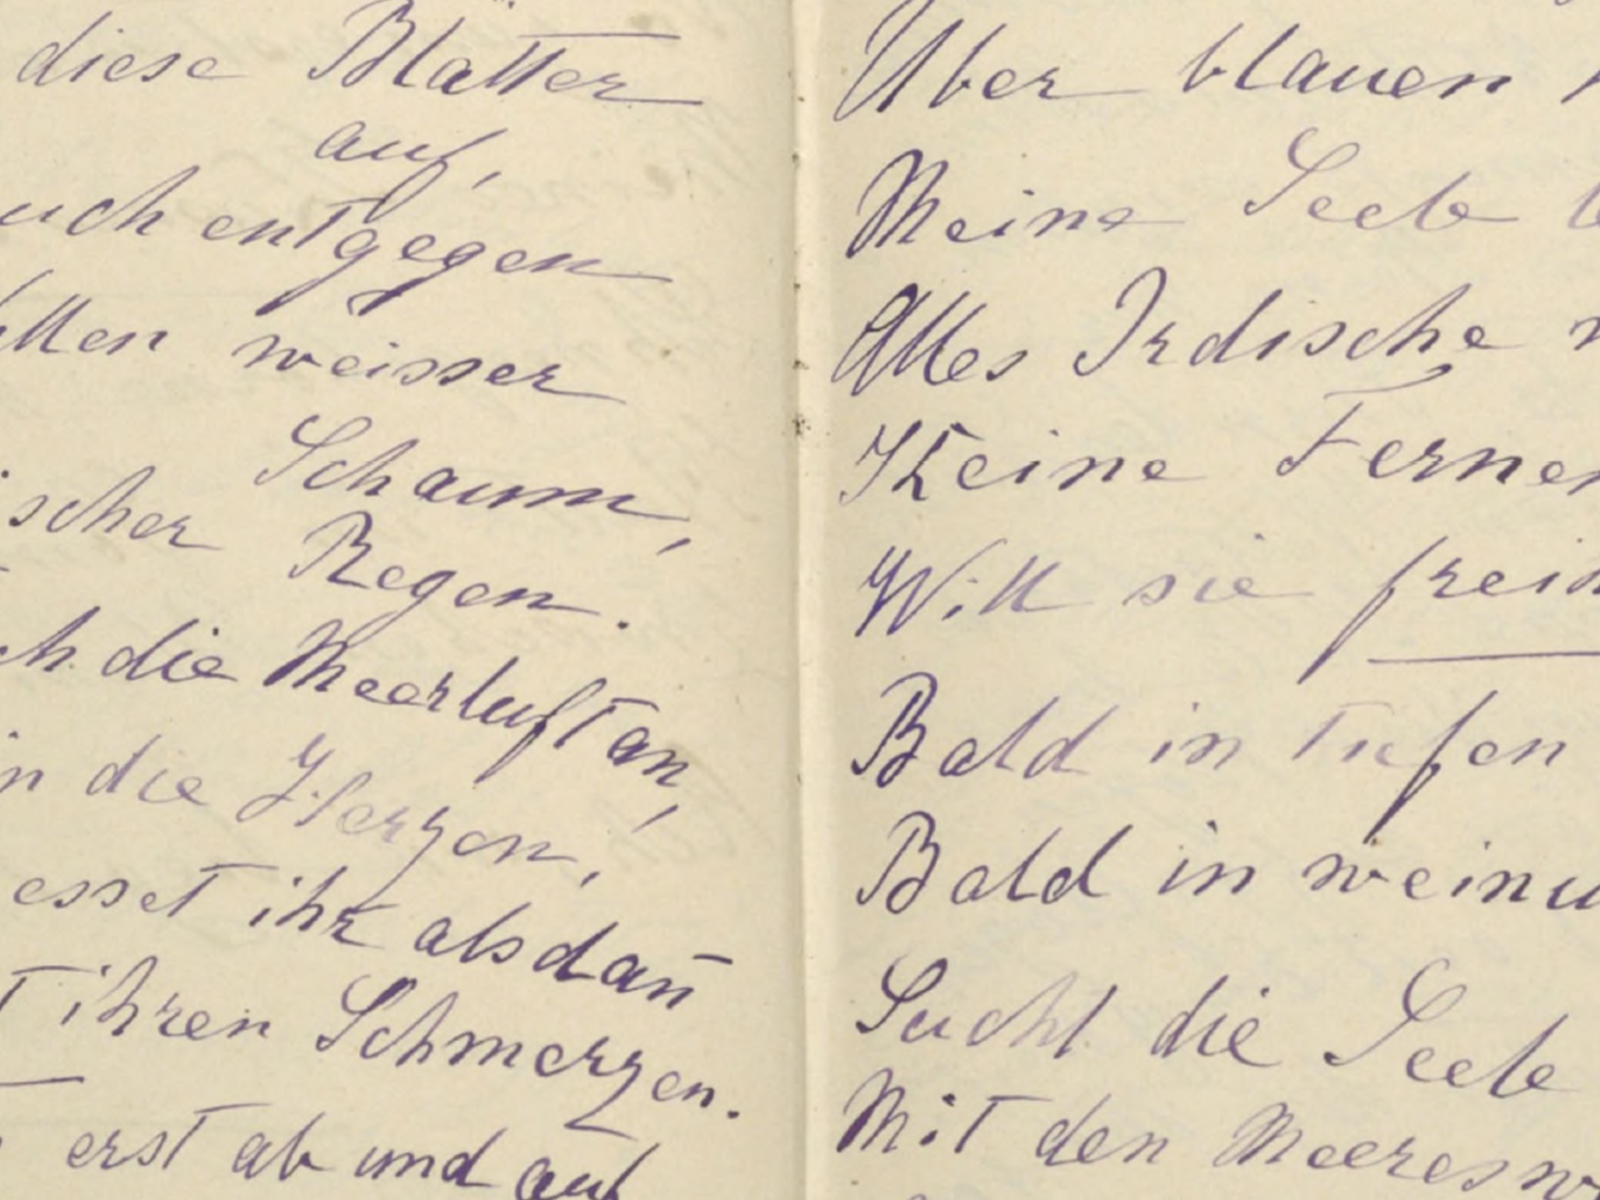 diese Blätter
auf,
entgegen
weisser
Schaum,
Regen.
die Meerluft an,
in die Herzen,
ihr alsdan̄
ihren Schmerzen.
erst ab und auf
Über blauen
Meine Seele
Alles Irdische
Keine Fernen
Will sie
Bald in tiefen
Bald in
Sucht die Seele
Mit den